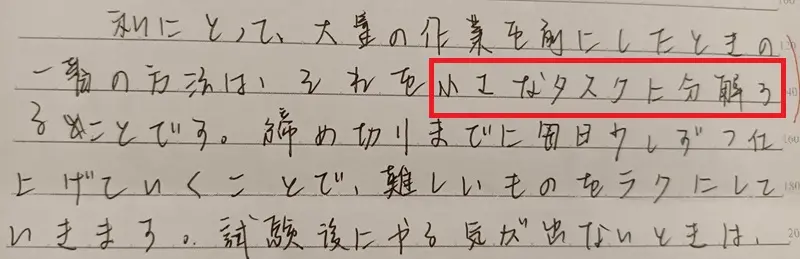 私にとって、大量の作業を前にしたときの
一番の方法は、それを小さなタスクに分解す
ることです。締め切りまでに毎日少しずつ仕
上げていくことで、難しいものをラクにして
いきます。試験後にやる気が出ないときは、